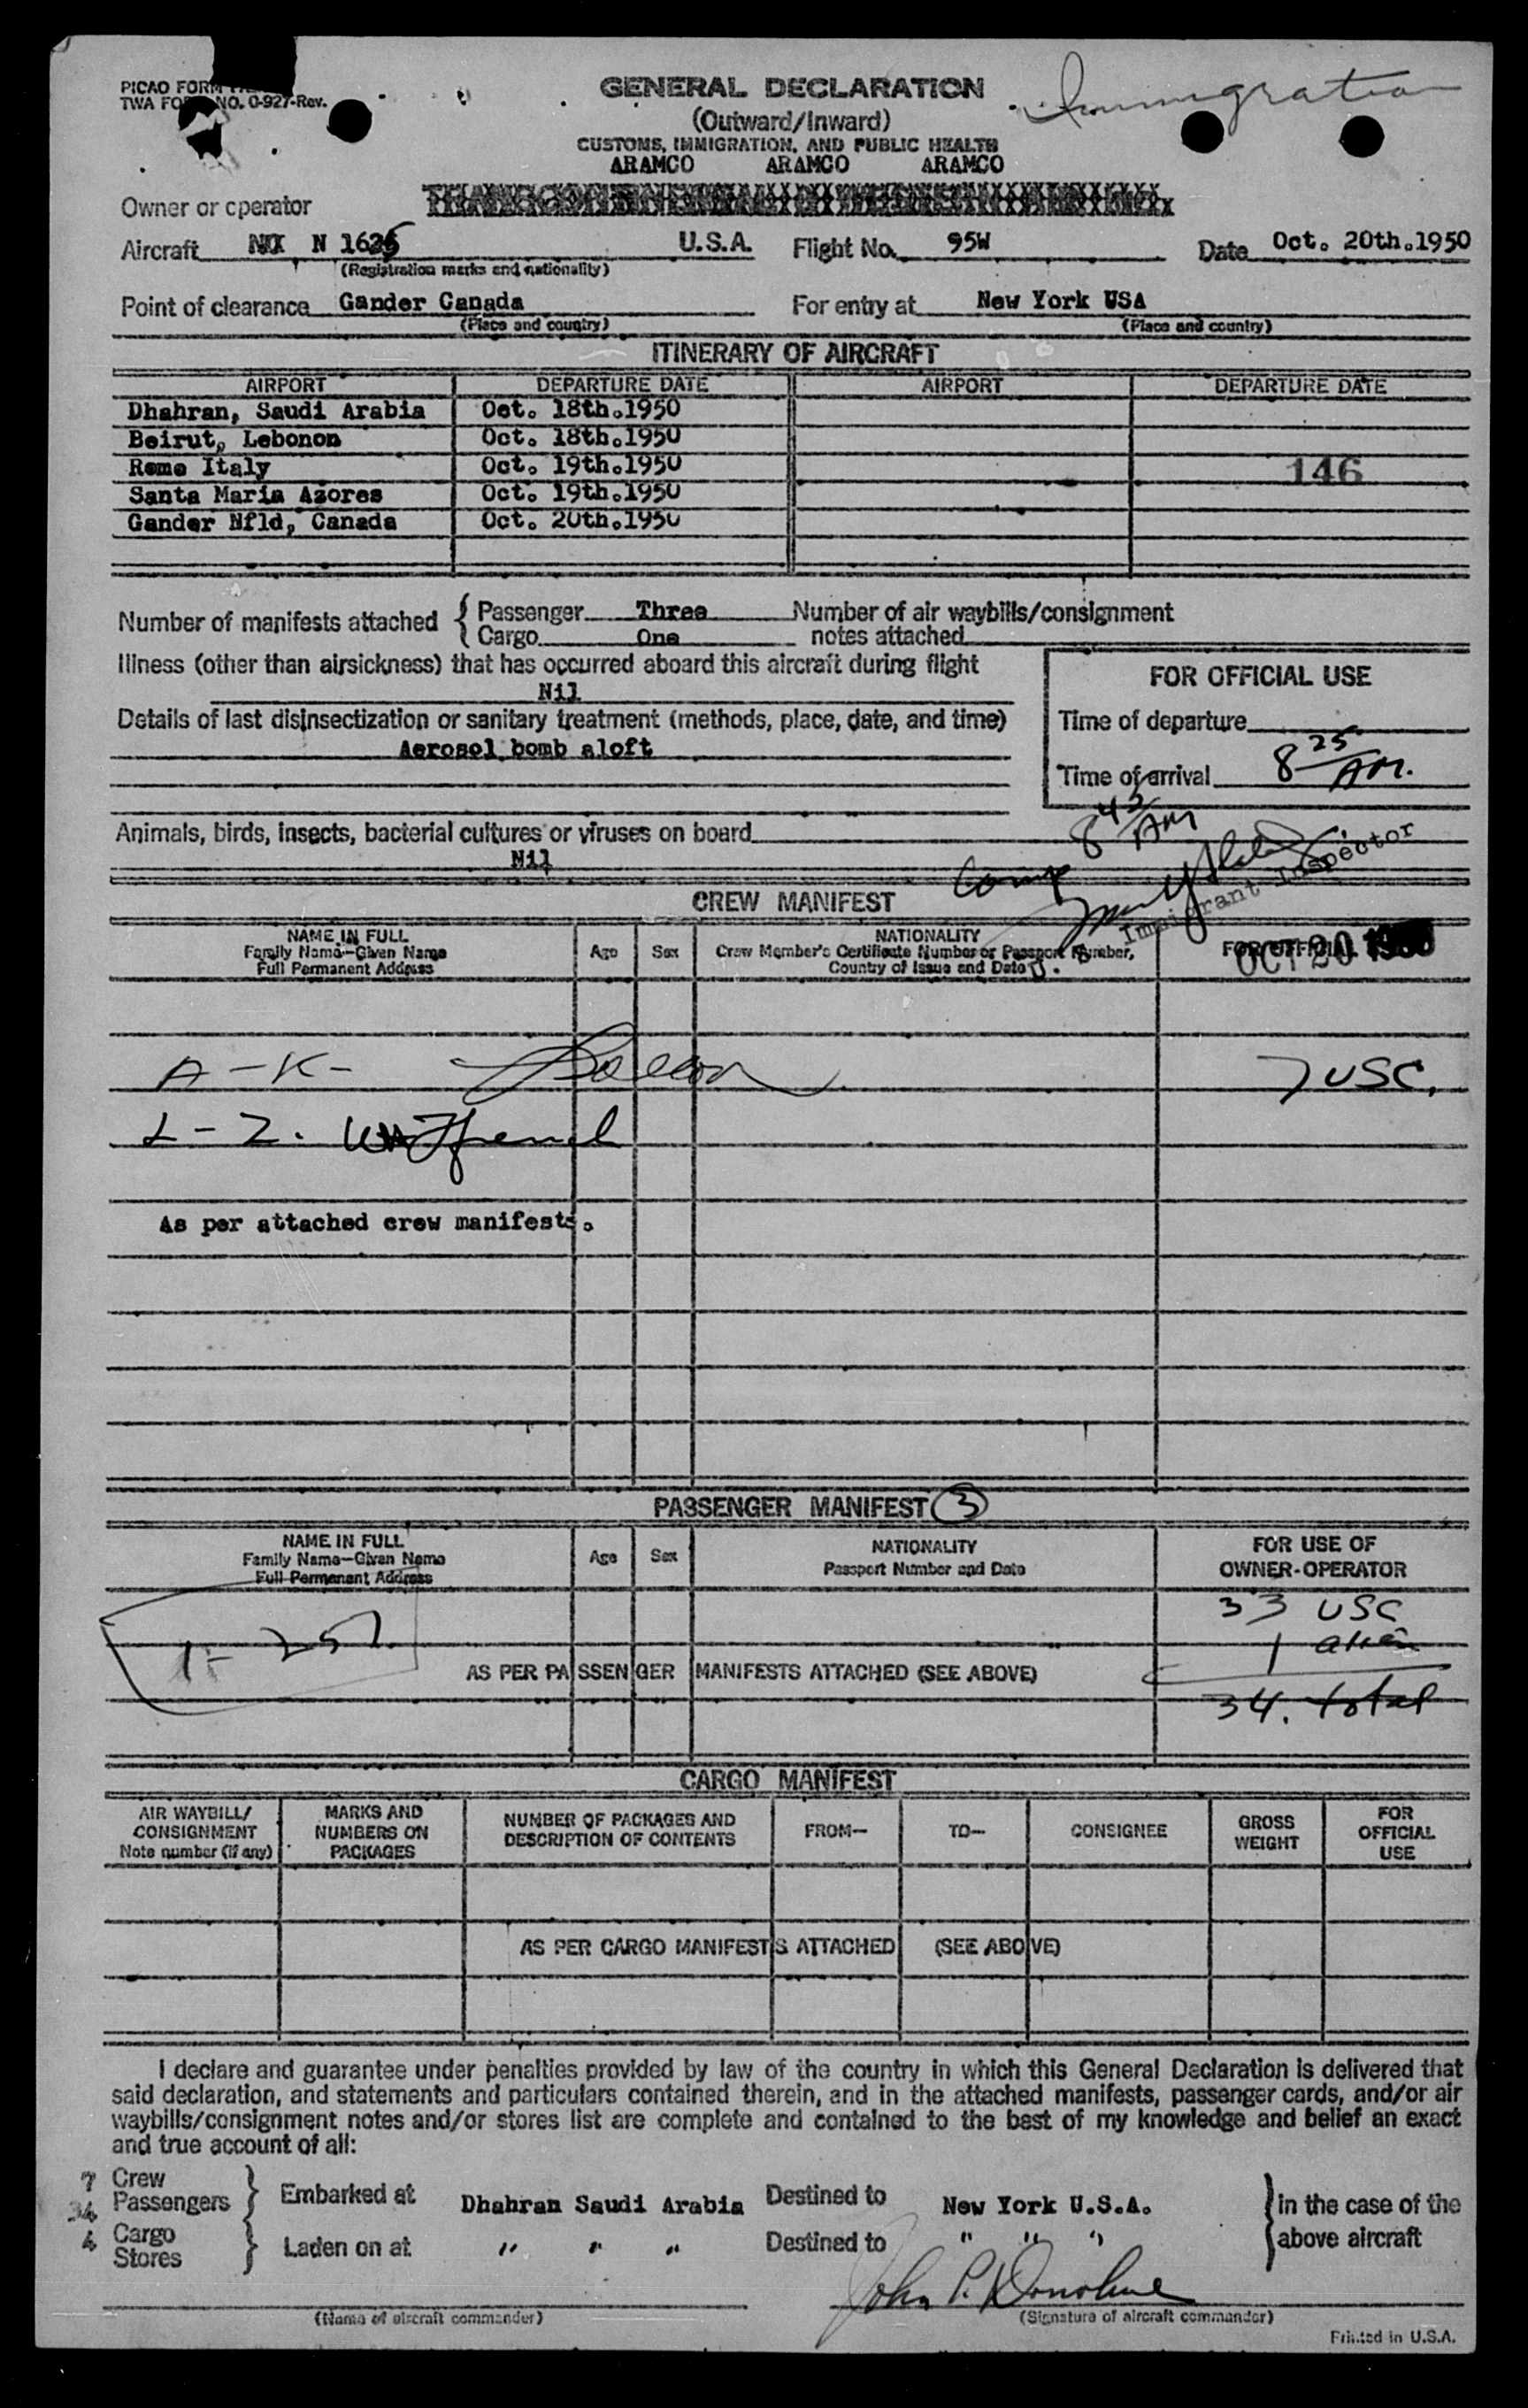 PICAO FORM
TWA FORM NO. O-927-Rev.
Immigration
GENERAL DECLARATION
(Outward/Inward)
CUSTOMS, IMMIGRATION, AND PUBLIC HEALTH
ARAMCO ARAMCO ARAMCO
Owner or operator
Aircraft N 1625 U.S.A. Flight No. 95W Date Oct. 20th.1950
(Registration marks and nationality)
Point of clearance Gander Canada For entry at New York USA
(Place and country) (Place and country)
ITINERARY OF AIRCRAFT
AIRPORT DEPARTURE DATE AIRPORT DEPARTURE DATE
Dhahran, Saudi Arabia Oct. 18th.1950
Beirut, Lebonon Oct. 18th.1950
Rome Italy Oct. 19th.1950 146
Santa Maria Azores Oct. 19th.1950
Gander Nfld, Canada Oct. 20th.1950
Number of manifests attached { Passenger Three Number of air waybills/consignment
Cargo One notes attached
Illness (other than airsickness) that has occurred aboard this aircraft during flight
Nil
Details of last disinsectization or sanitary treatment (methods, place, date, and time)
Aerosol bomb aloft
FOR OFFICIAL USE
Time of departure
Time of arrival 8 25 AM.
8 43 AM
Animals, birds, insects, bacterial cultures or viruses on board
Nil
Comp
Immigrant Inspector
CREW MANIFEST
NAME IN FULL Age Sex NATIONALITY FOR OFFICIAL
Family Name—Given Name Crew Member's Certificate Number or Passport Number,
Full Permanent Address Country of Issue and Date
OCT 20 1950
A - K - 7 USC.
L - Z.
As per attached crew manifests.
PASSENGER MANIFEST 3
NAME IN FULL Age Sex NATIONALITY FOR USE OF
Family Name—Given Name Passport Number and Date OWNER-OPERATOR
Full Permanent Address
33 USC
1 - 257 1 alien
AS PER PASSENGER MANIFESTS ATTACHED (SEE ABOVE)
34. total
CARGO MANIFEST
AIR WAYBILL/ MARKS AND NUMBER OF PACKAGES AND FROM— TO— CONSIGNEE GROSS FOR
CONSIGNMENT NUMBERS ON DESCRIPTION OF CONTENTS WEIGHT OFFICIAL
Note number (if any) PACKAGES USE
AS PER CARGO MANIFESTS ATTACHED (SEE ABOVE)
I declare and guarantee under penalties provided by law of the country in which this General Declaration is delivered that
said declaration, and statements and particulars contained therein, and in the attached manifests, passenger cards, and/or air
waybills/consignment notes and/or stores list are complete and contained to the best of my knowledge and belief an exact
and true account of all:
7 Crew
34 Passengers } Embarked at Dhahran Saudi Arabia Destined to New York U.S.A. } in the case of the
4 Cargo
Stores } Laden on at " " " Destined to " " " above aircraft
John P. Donohue
(Name of aircraft commander) (Signature of aircraft commander)
Printed in U.S.A.